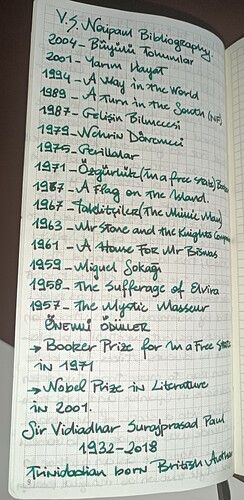 V.S. Naipaul Bibliography:
2004 - Büyülü Tohumlar
2001 - Yarım Hayat
1994 - A Way in the World
1989 - A Turn in the South (NF)
1987 - Gelişin Bilmecesi
1979 - Nehrin Dönemeci
1975 - Gerillalar
1971 - Özgürlükte (In a free state) Booker
1967 - A Flag on The Island.
1967 - Taklitçiler (The Mimic Man)
1963 - Mr Stone and the Knights Compan
1961 - A House For Mr Biswas
1959 - Miguel Sokağı
1958 - The Sufferage of Elvira
1957 - The Mystic Masseur
ÖNEMLİ ÖDÜLLER
→ Booker Prize for In a Free State
in 1971
→ Nobel Prize in Literature
in 2001.
Sir Vidiadhar Surajprasad Paul
1932-2018
Trinidadian born British Author